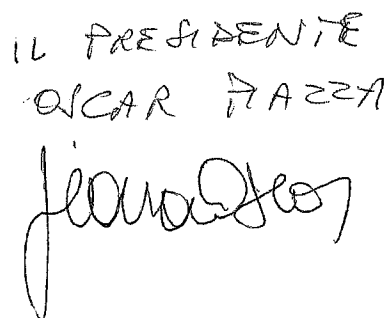 IL PRESIDENTE
OSCAR PIAZZA